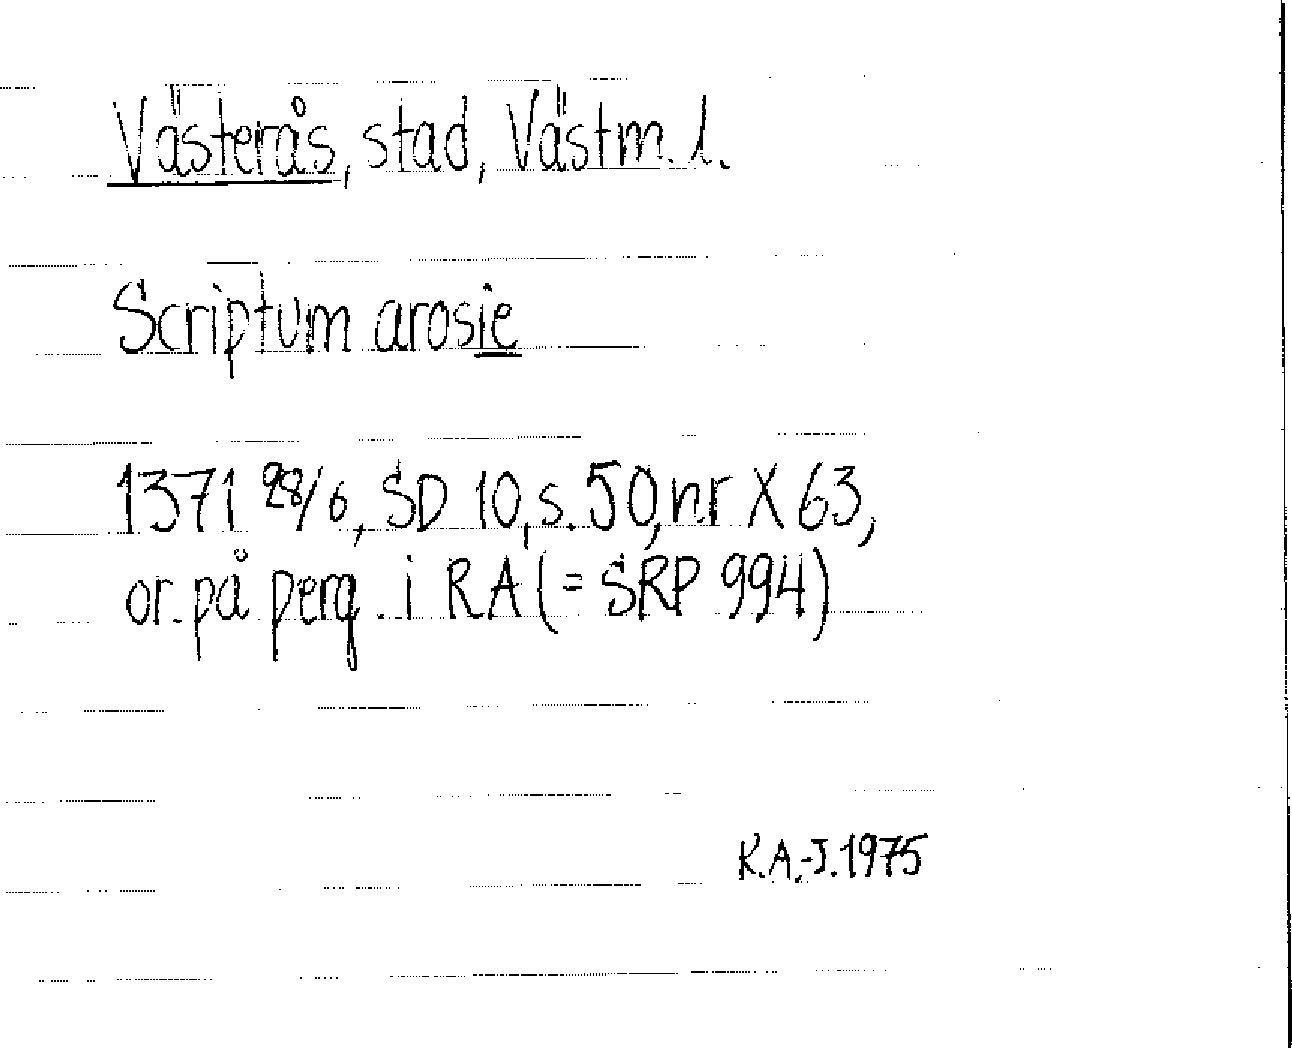 Västerås, stad, Västm. l.
Scriptum arosie
1371 28/6, SD 10, s. 50, nr X 63,
or. på perg. i RA (= SRP 994)
K.A.-J. 1975